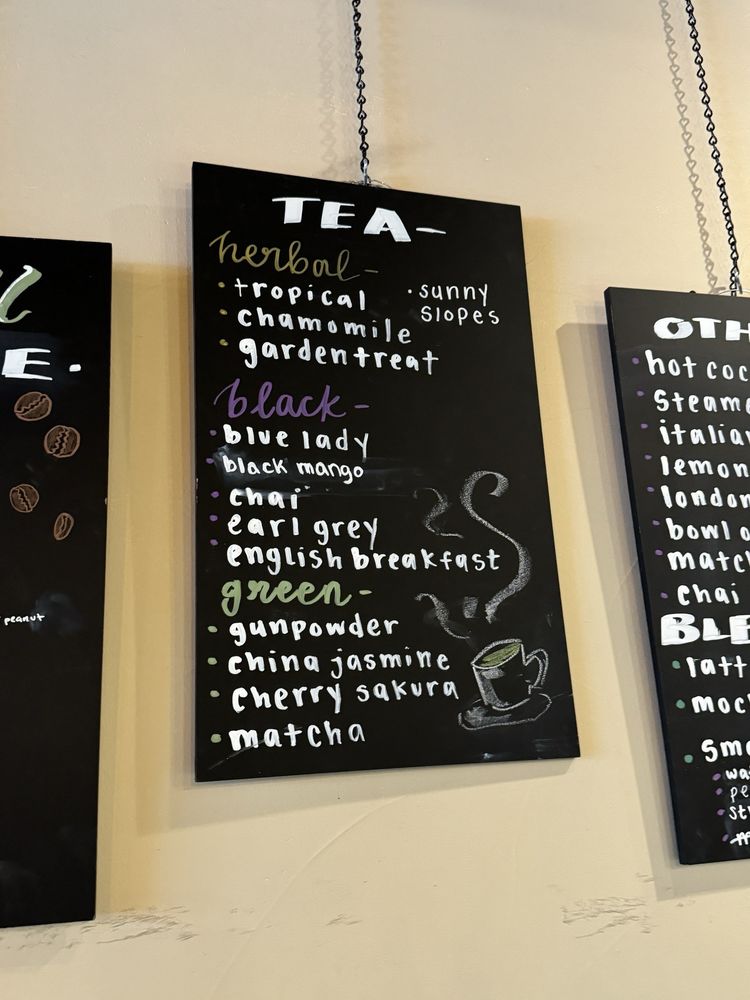 E.
peanut
TEA-
herbal-
· tropical
· chamomile
· garden treat
· sunny
slopes
black-
· blue lady
· black mango
· chai
· earl grey
· english breakfast
green-
· gunpowder
· china jasmine
· cherry sakura
· matcha
OTH
· hot coc
· steame
· italia
· lemon
· london
· bowl o
· matc
· chai
BLE
· latt
· moc
· smo
· wa
· pe
· st